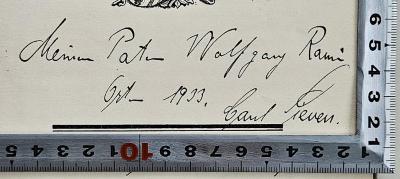 Meinem Paten Wolfgang
Ostern 1933.
Carl Sievers.
5 4 3 2 1 10 9 8 7 6 5 4 3 2 1
6 5 4 3 2 1